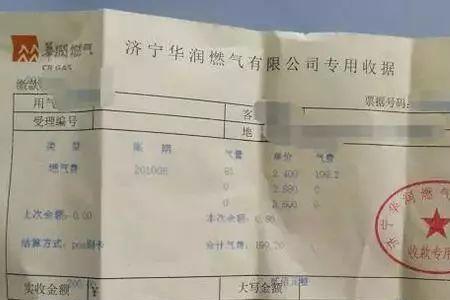 华润燃气
CR GAS
济宁华润燃气有限公司专用收据
缴款
票据号码:
用气
客
受理编号
地
类型 账期 气量 单价 气费
燃气费 201006 2.400 199.2
0 2.880 0
0 3.600 0
上次余额:0.00 本次余额:0.80
结算方式:pos刷卡 合计气费:199.20
实收金额 ¥ 大写金额
济宁华润燃气
收款专用